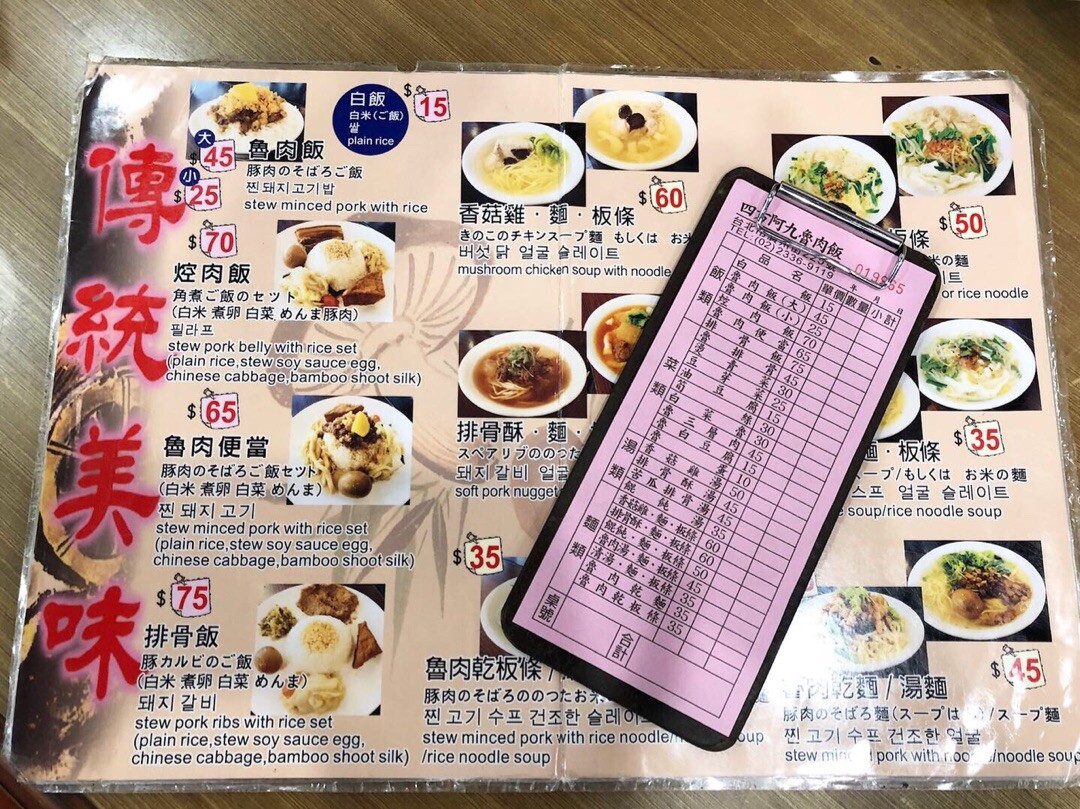 傳統美味
大
$ 45
小
$ 25
魯肉飯
豚肉のそぼろご飯
찐돼지고기밥
stew minced pork with rice
白飯
白米(ご飯)
쌀
plain rice
$ 15
$ 70
焢肉飯
角煮ご飯のセット
(白米 煮卵 白菜 めんま豚肉)
필라프
stew pork belly with rice set
(plain rice,stew soy sauce egg,
chinese cabbage,bamboo shoot silk)
$ 65
魯肉便當
豚肉のそぼろご飯セット
(白米 煮卵 白菜 めんま)
찐 돼지 고기
stew minced pork with rice set
(plain rice,stew soy sauce egg,
chinese cabbage,bamboo shoot silk)
$ 75
排骨飯
豚カルビのご飯
(白米 煮卵 白菜 めんま)
돼지 갈비
stew pork ribs with rice set
(plain rice,stew soy sauce egg,
chinese cabbage,bamboo shoot silk)
$ 60
香菇雞・麵・板條
きのこのチキンスープ麵 もしくは お米
버섯 닭 얼굴 슬레이트
mushroom chicken soup with noodle
排骨酥・麵・
スペアリブののつた
돼지 갈비 얼굴
soft pork nugget
$ 35
魯肉乾板條/
豚肉のそぼろののつたお米
찐 고기 수프 건조한 슬레이트
stew minced pork with rice noodle/
/rice noodle soup
oup
$ 50
板條
の麵
이트
or rice noodle
$ 35
麵・板條
スープ/もしくは お米の麵
스프 얼굴 슬레이트
e soup/rice noodle soup
$ 45
魯肉乾麵/湯麵
豚肉のそぼろ麵(スープは
)/スープ麵
찐 고기 수프 건조한 얼굴
stew minced pork with noodle/noodle soup
阿九魯肉飯
TEL:(02)2336-9119
年 月 日
品名 單價 數量 小計
飯類
白飯 15
魯肉飯(大) 45
魯肉飯(小) 25
焢肉飯 70
魯肉便當 65
75
菜類
45
30
25
30
30
45
15
10
湯類
香菇雞湯 50
排骨酥湯 45
苦瓜排骨湯 45
餛飩湯 35
麵類
香菇雞・麵・板條 60
排骨酥・麵・板條 60
餛飩・麵・板條 50
魯肉湯・麵・板條 45
清湯・麵・板條 35
魯肉乾麵 35
魯肉乾板條 35
桌號
合計